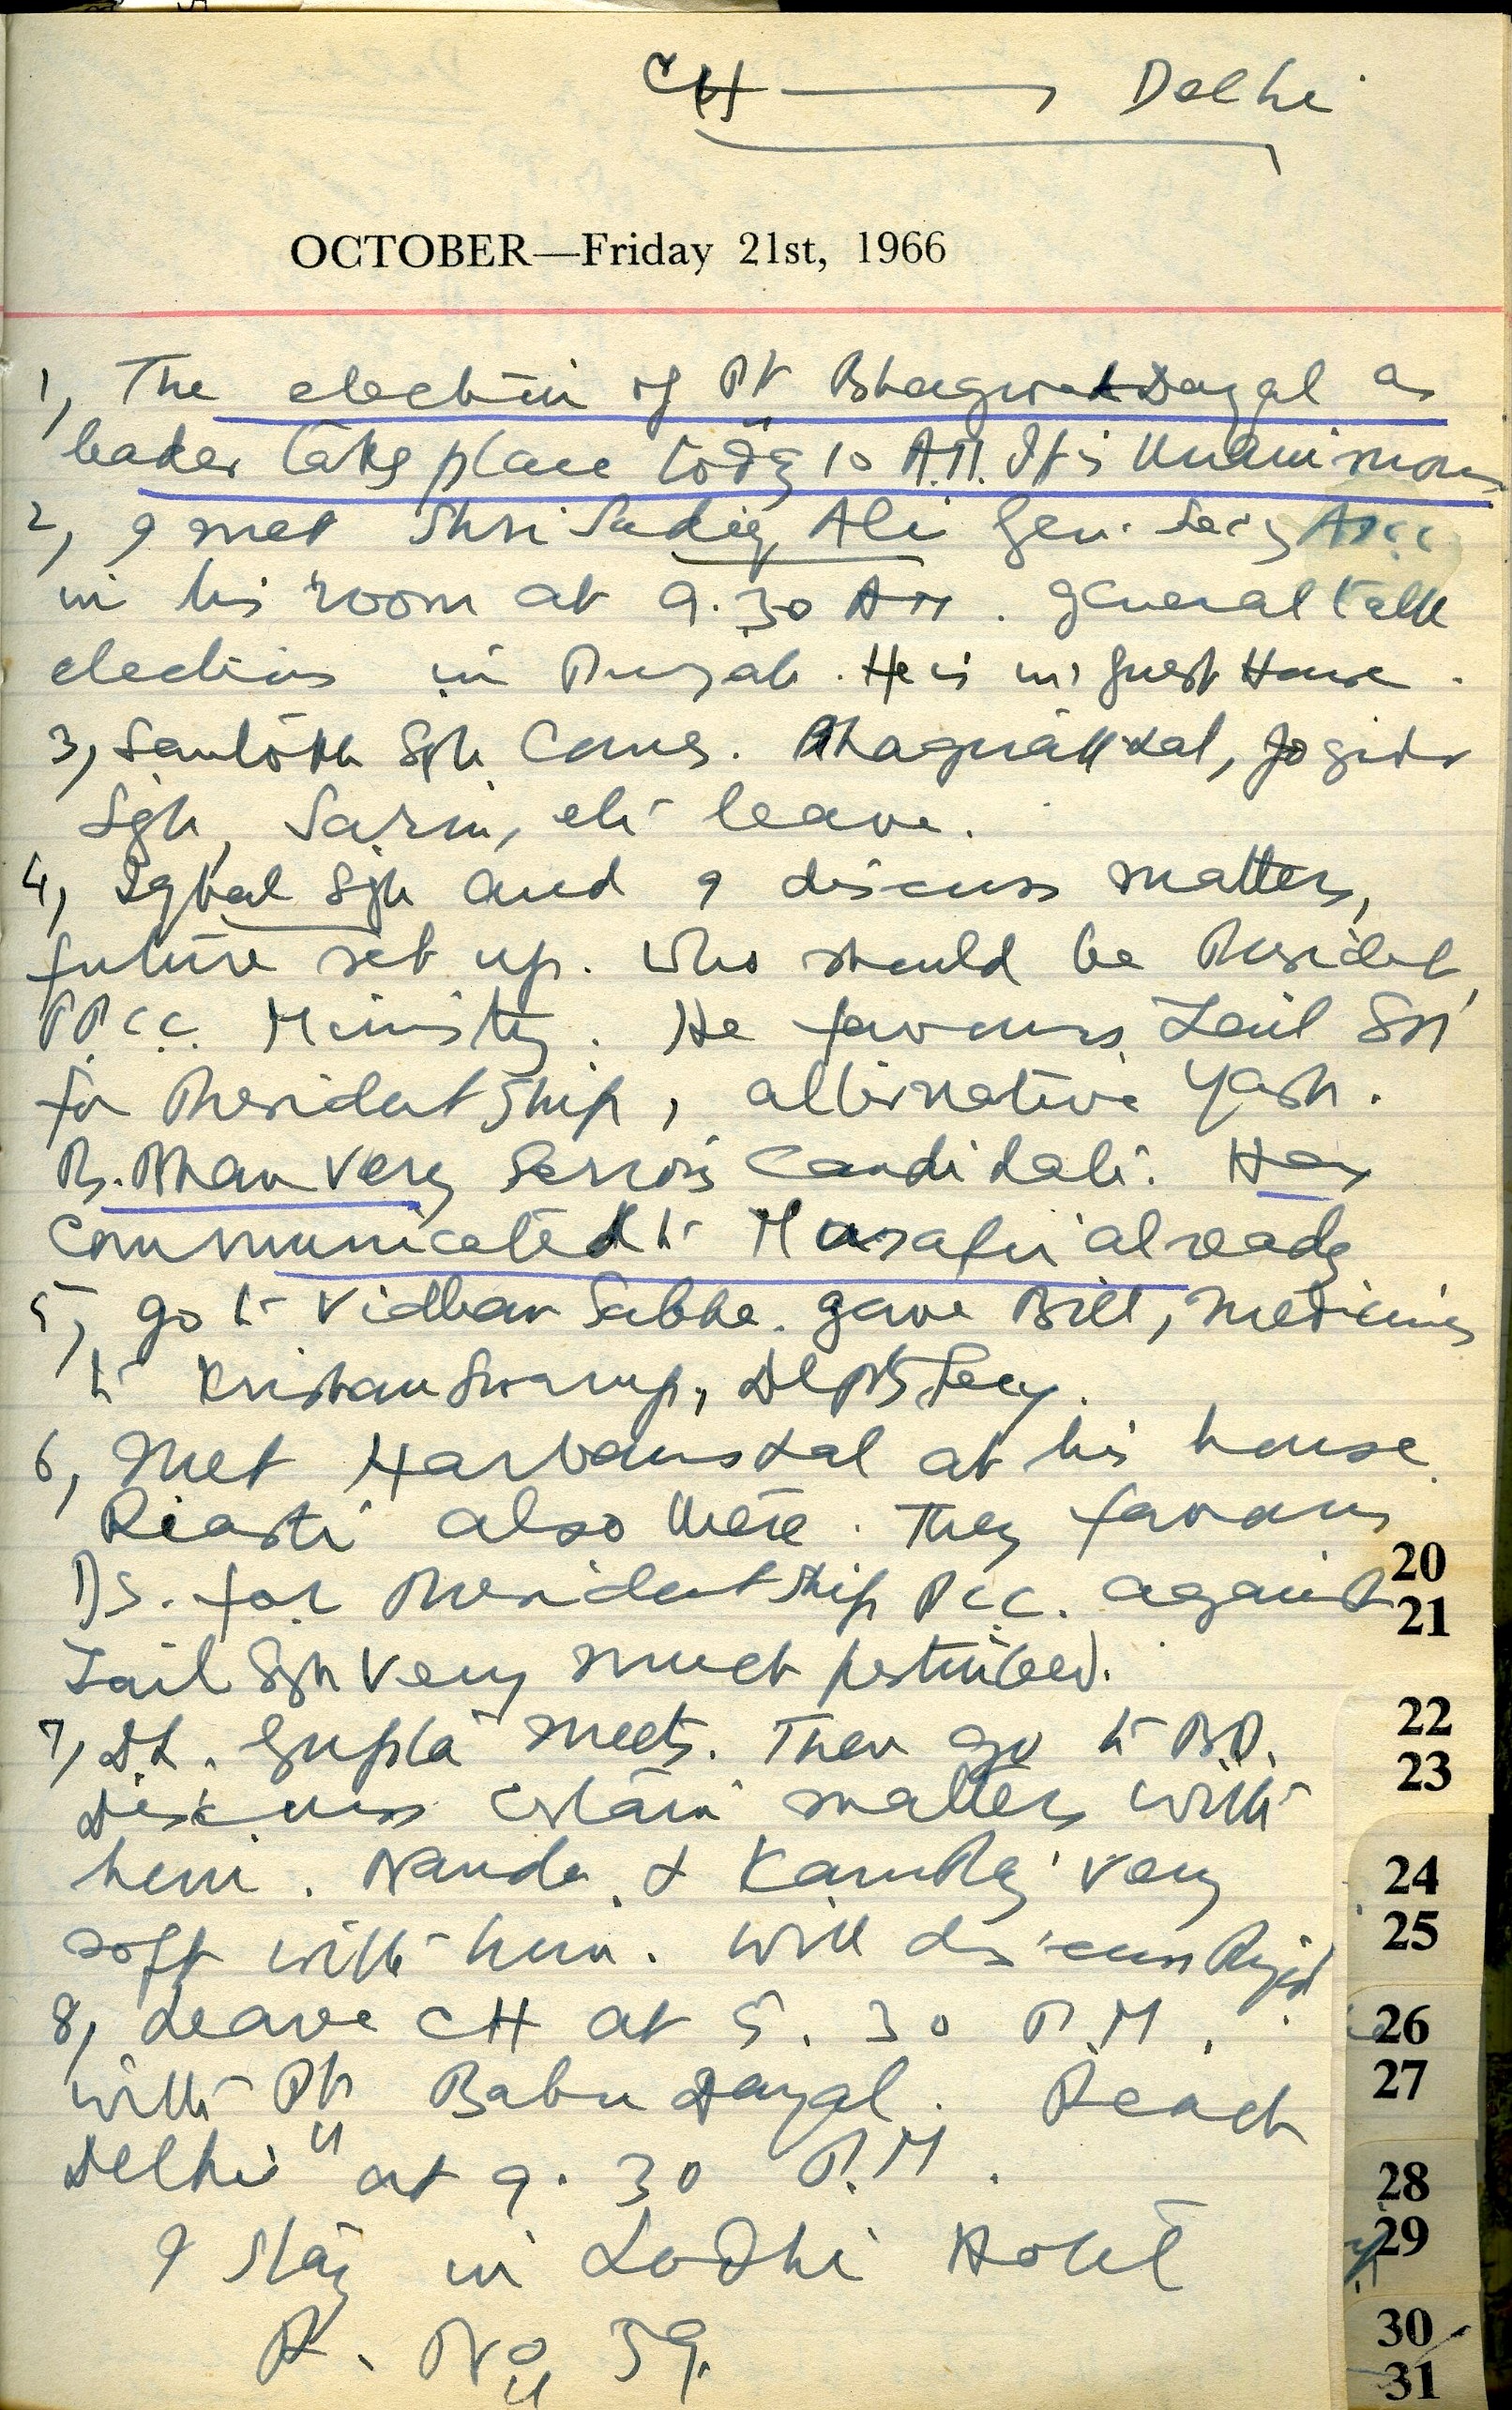 CH → Delhi
OCTOBER—Friday 21st, 1966
1, The election of Pt Bhagwat Dayal as
leader takes place today 10 A.M. It is Unanimous
2, I met Shri Sadiq Ali Gen. Secy AICC
in his room at 9.30 AM. general talk
elections in Punjab. He is in Guest House.
3, Santokh Sgh Comes. Bhagwatt Lal, Joginder
Sgh, Sarin, etc leave.
4, Iqbal Sgh and I discuss matters,
future set up. Who should be President,
PPCC. Ministry. He favours Zail Sgh
for Presidentship, alternative Yash.
P. Bhan very Serious Candidate. Has
communicated to Musafir already
5, go to Vidhan Sabha. gave Bill, medicines
to Krishan Swarup, Depty Secy.
6, Met Harbans Lal at his house.
Riasti also there. They favour
DS. for Presidentship PCC. against
Zail Sgh very much
7, DL. Gupta meets. Then go to BD.
Discuss certain matters with
him. Nanda & Kamraj very
soft with him. Will discuss
8, Leave CH at 5.30 P.M.
with Pt Babu Dayal. Reach
Delhi at 9.30 P.M.
I stay in Lodhi Hotel
R. No 39.
20
21
22
23
24
25
26
27
28
29
30
31